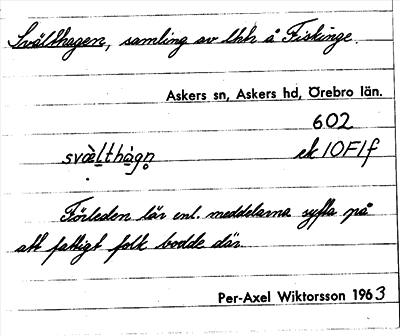 Svälthagen, samling av lhh å Fiskinge.
Askers sn, Askers hd, Örebro län.
602
svàlthàgn ek 10F1f
Förleden lär enl. meddelarna syfta på
att fattigt folk bodde där.
Per-Axel Wiktorsson 1963